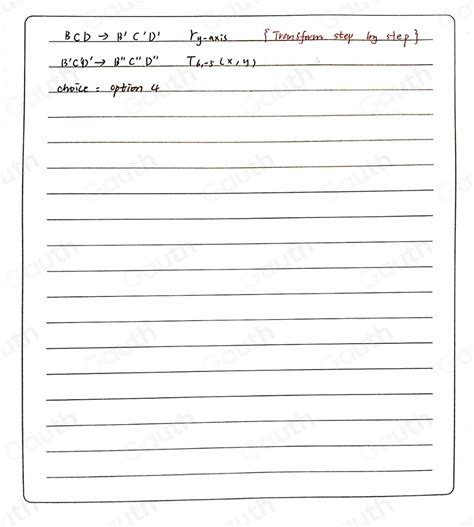 BCD → B'C'D' r y-axis {Transform step by step}
B'C'D' → B"C"D" T6,-5 (x, y)
choice = option 4
Gauth